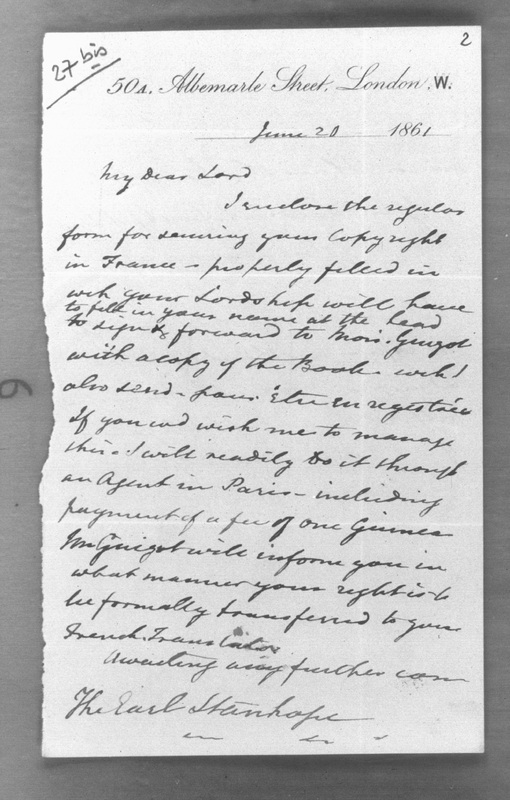 2
27 bis
50A. Albemarle Street, London. W.
June 20 1861
My Dear Lord
I enclose the regular
form for securing your Copyright
in France - properly filled in
wch your Lordship will have
to fill in your name at the head
to sign & forward to Mons. Guizot
with a copy of the Book wch I
also send - pour être enregistrée
If you wd wish me to manage
this I will readily do it through
an Agent in Paris - including
payment of a fee of one Guinea
Mr Guizot will inform you in
what manner your right is to
be formally transferred to your
French Translator
Awaiting any further com
The Earl Stanhope